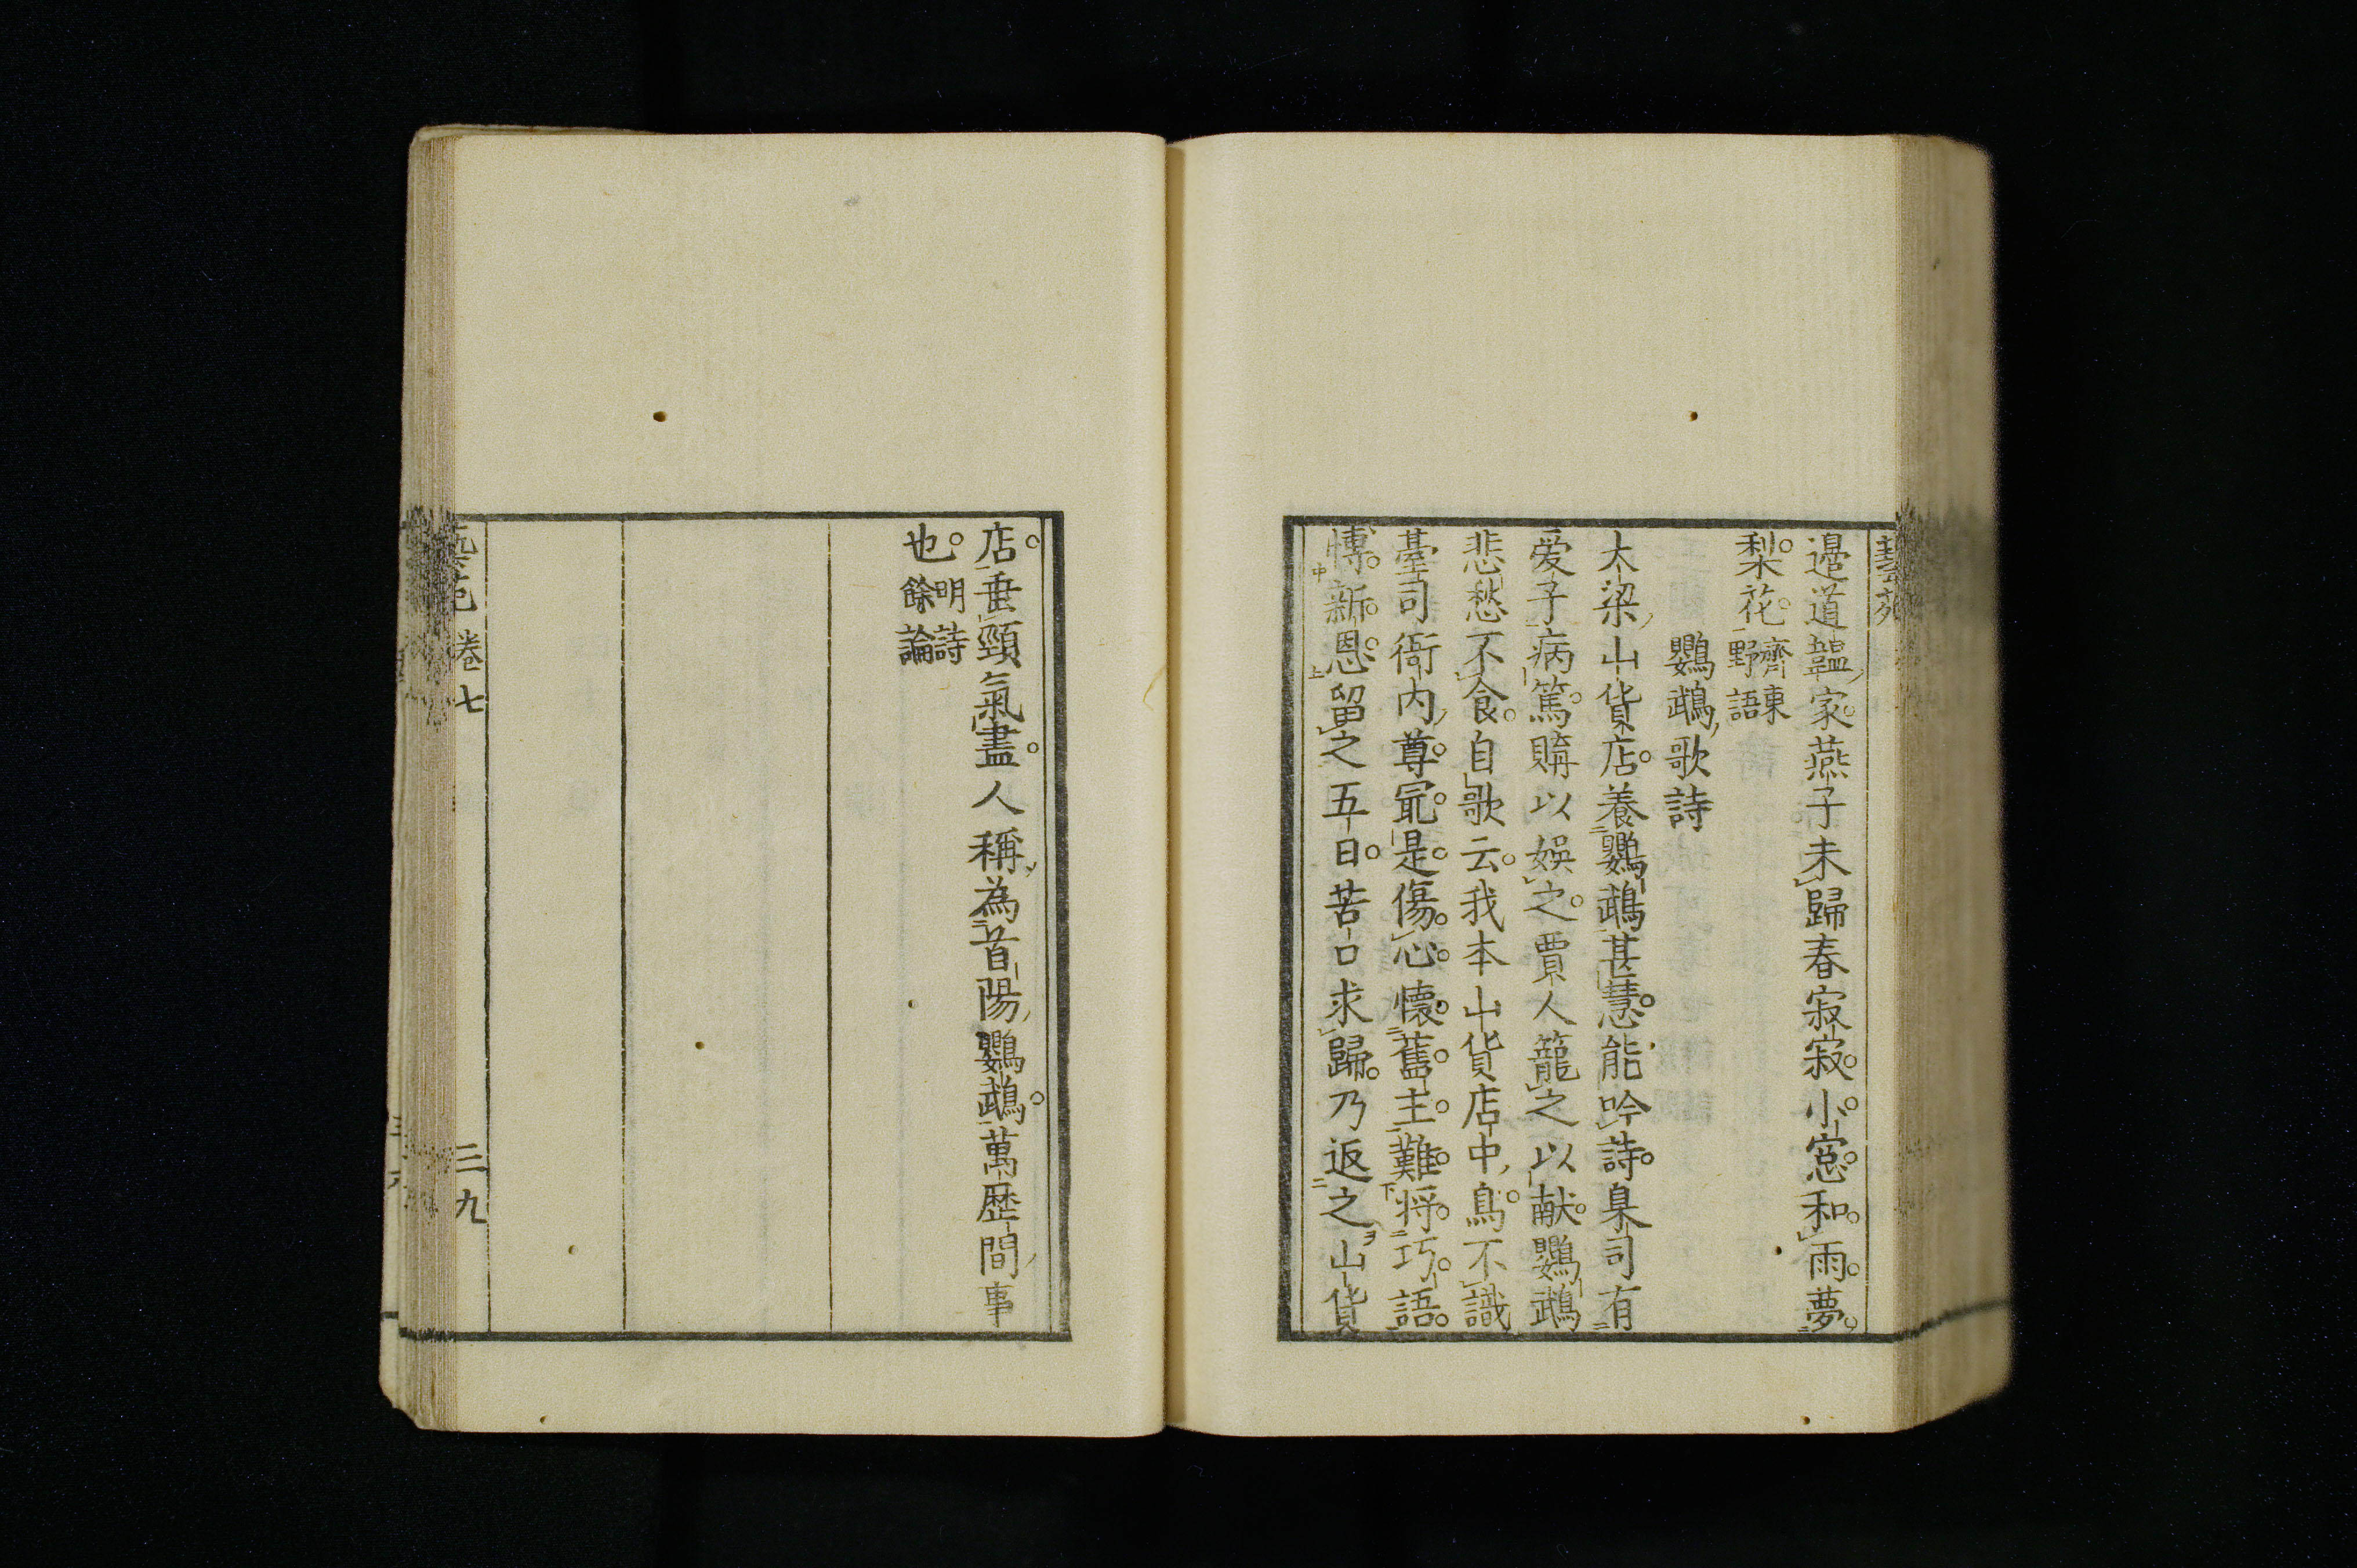 藝苑
邉道韞家燕子未歸春寂寂小窻和雨夢
梨花齊東野語
鸚鵡歌詩
大梁山貨店養鸚鵡甚慧能吟詩臬司有
爱子病篤購以娯之賈人籠之以献鸚鵡
悲愁不食自歌云我本山貨店中鳥不識
臺司衙内尊冣是傷心懷舊主難将巧語
博新恩留之五日苦口求歸乃返之山貨
店垂頸氣盡人稱為首陽鸚鵡萬歴間事
也明詩餘論
卷七
三九